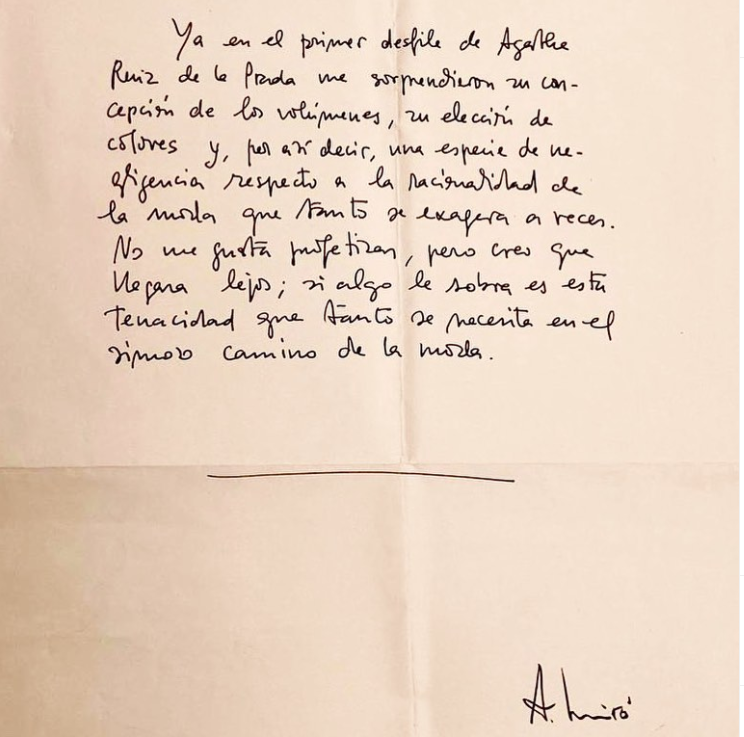 Ya en el primer desfile de Agatha
Ruiz de la Prada me sorprendieron su con-
cepción de los volúmenes, su elección de
colores y, por así decir, una especie de ne-
gligencia respecto a la racionalidad de
la moda que tanto se exagera a veces.
No me gusta profetizar, pero creo que
llegara lejos; si algo le sobra es esta
tenacidad que tanto se necesita en el
camino de la moda.
A. Miró